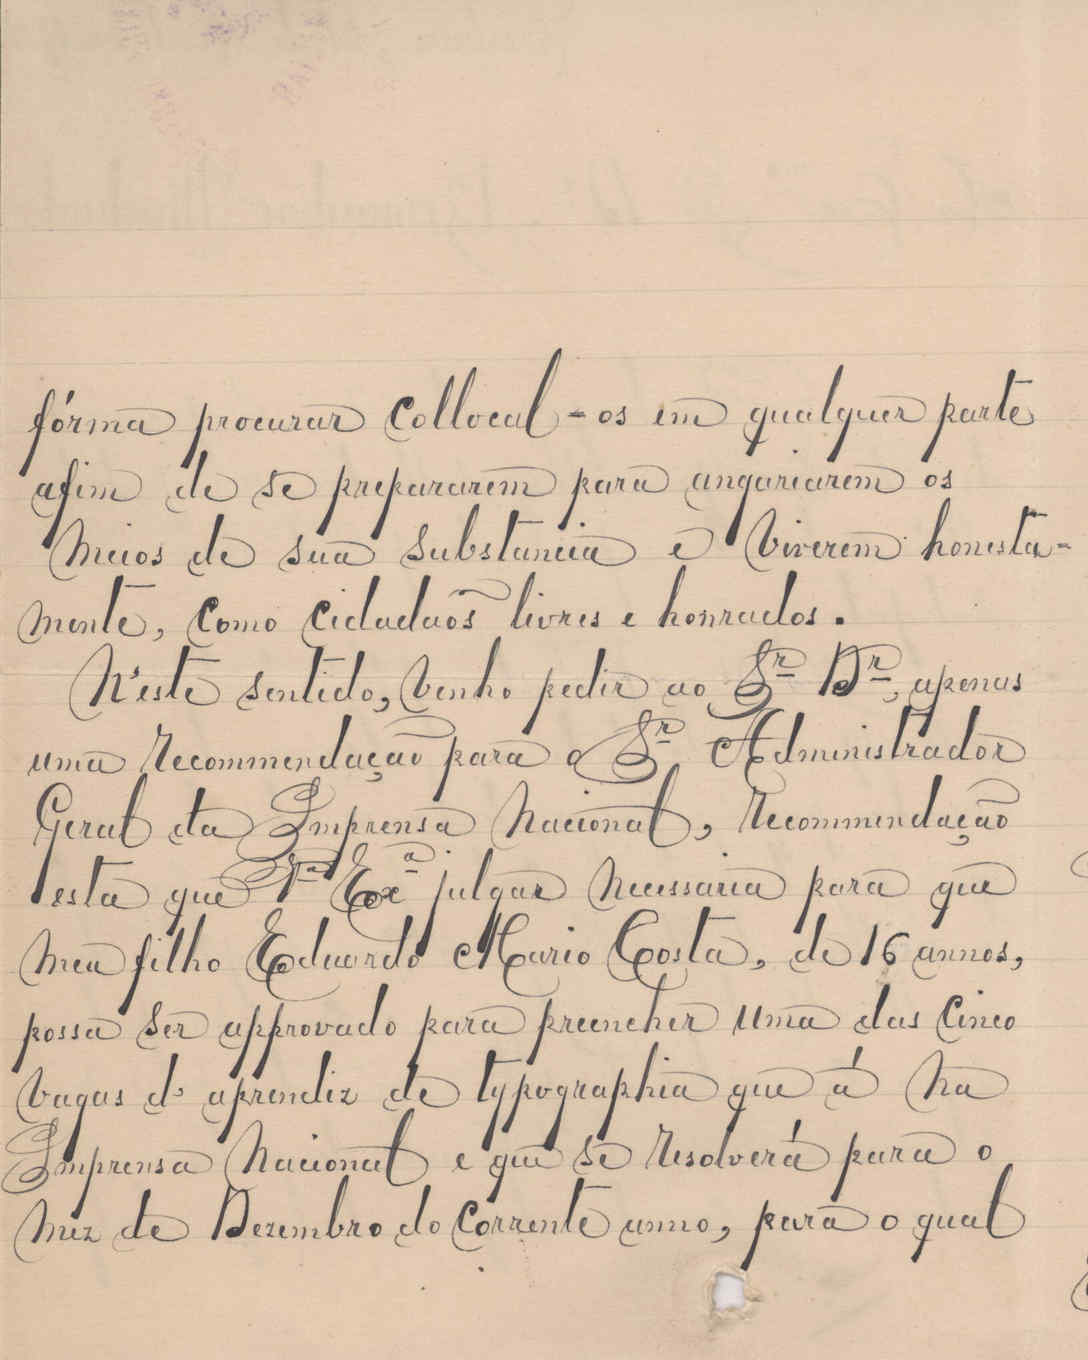 fórma procurar collocal-os em qualquer parte
afim de se prepararem para angariarem os
meios de sua substancia e viverem honesta-
mente, como cidadaõs livres e honrados.
N'este sentido, venho pedir ao Sr Dr, apenas
uma recommendação para o Sr Administrador
Geral da Imprensa Nacional, recommendação
esta que Va Exa julgar necessaria para que
meu filho Eduardo Mario Costa, de 16 annos,
possa ser approvado para preencher uma das cinco
vagas d'aprendiz de typographia que á na
Imprensa Nacional e que se resolverá para o
mez de Dezembro do corrente anno, para o qual